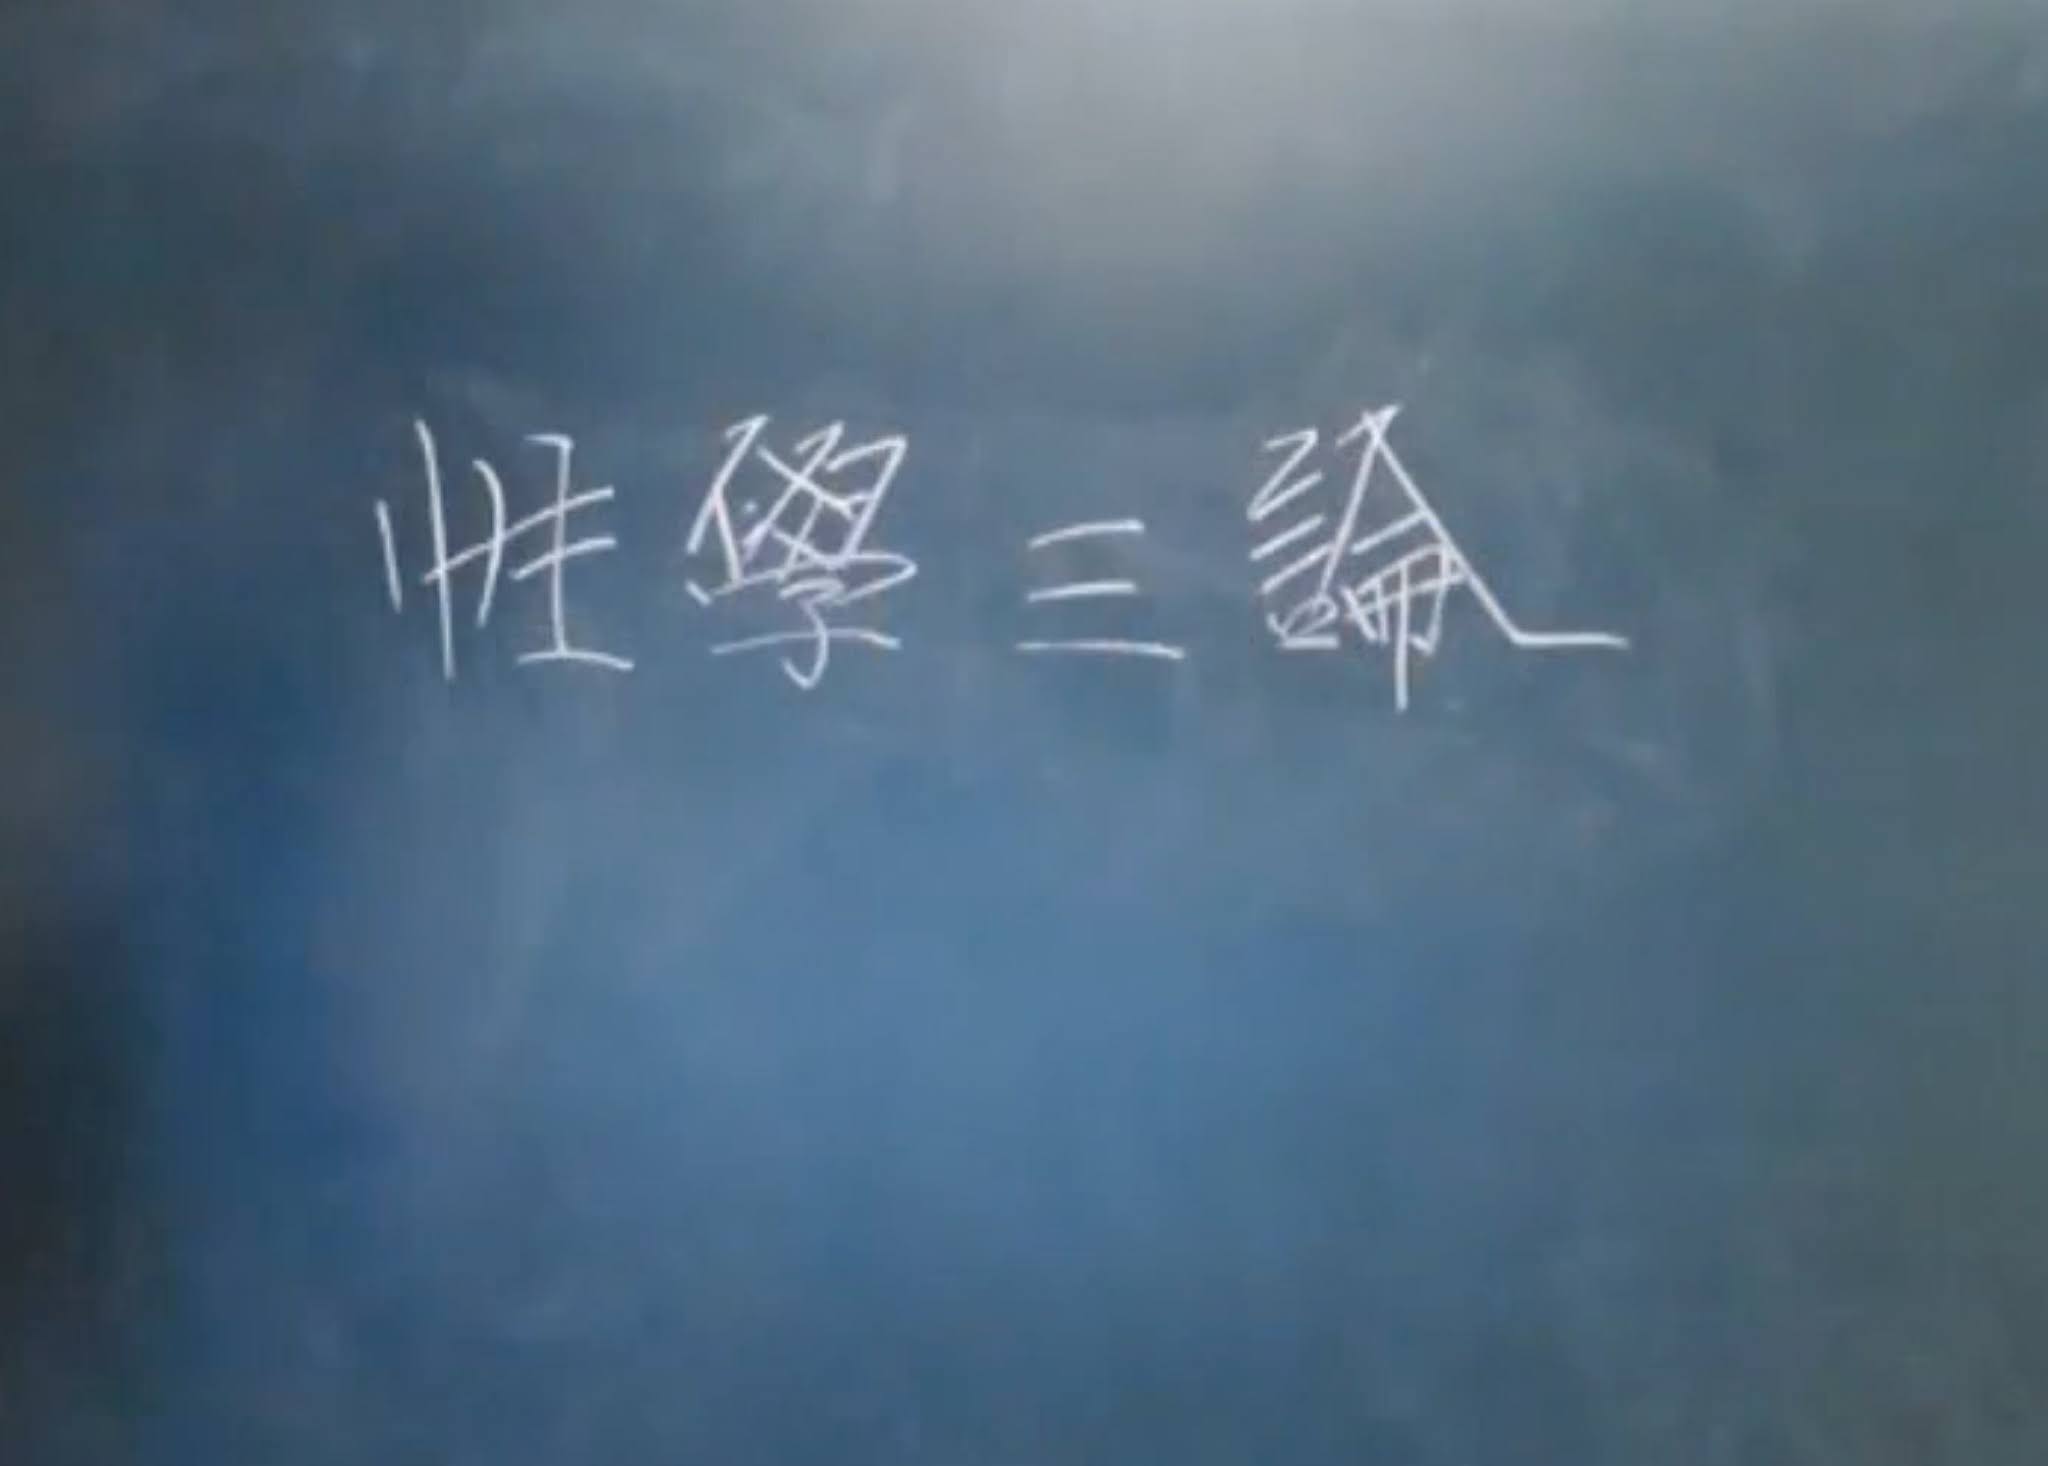 性學三論